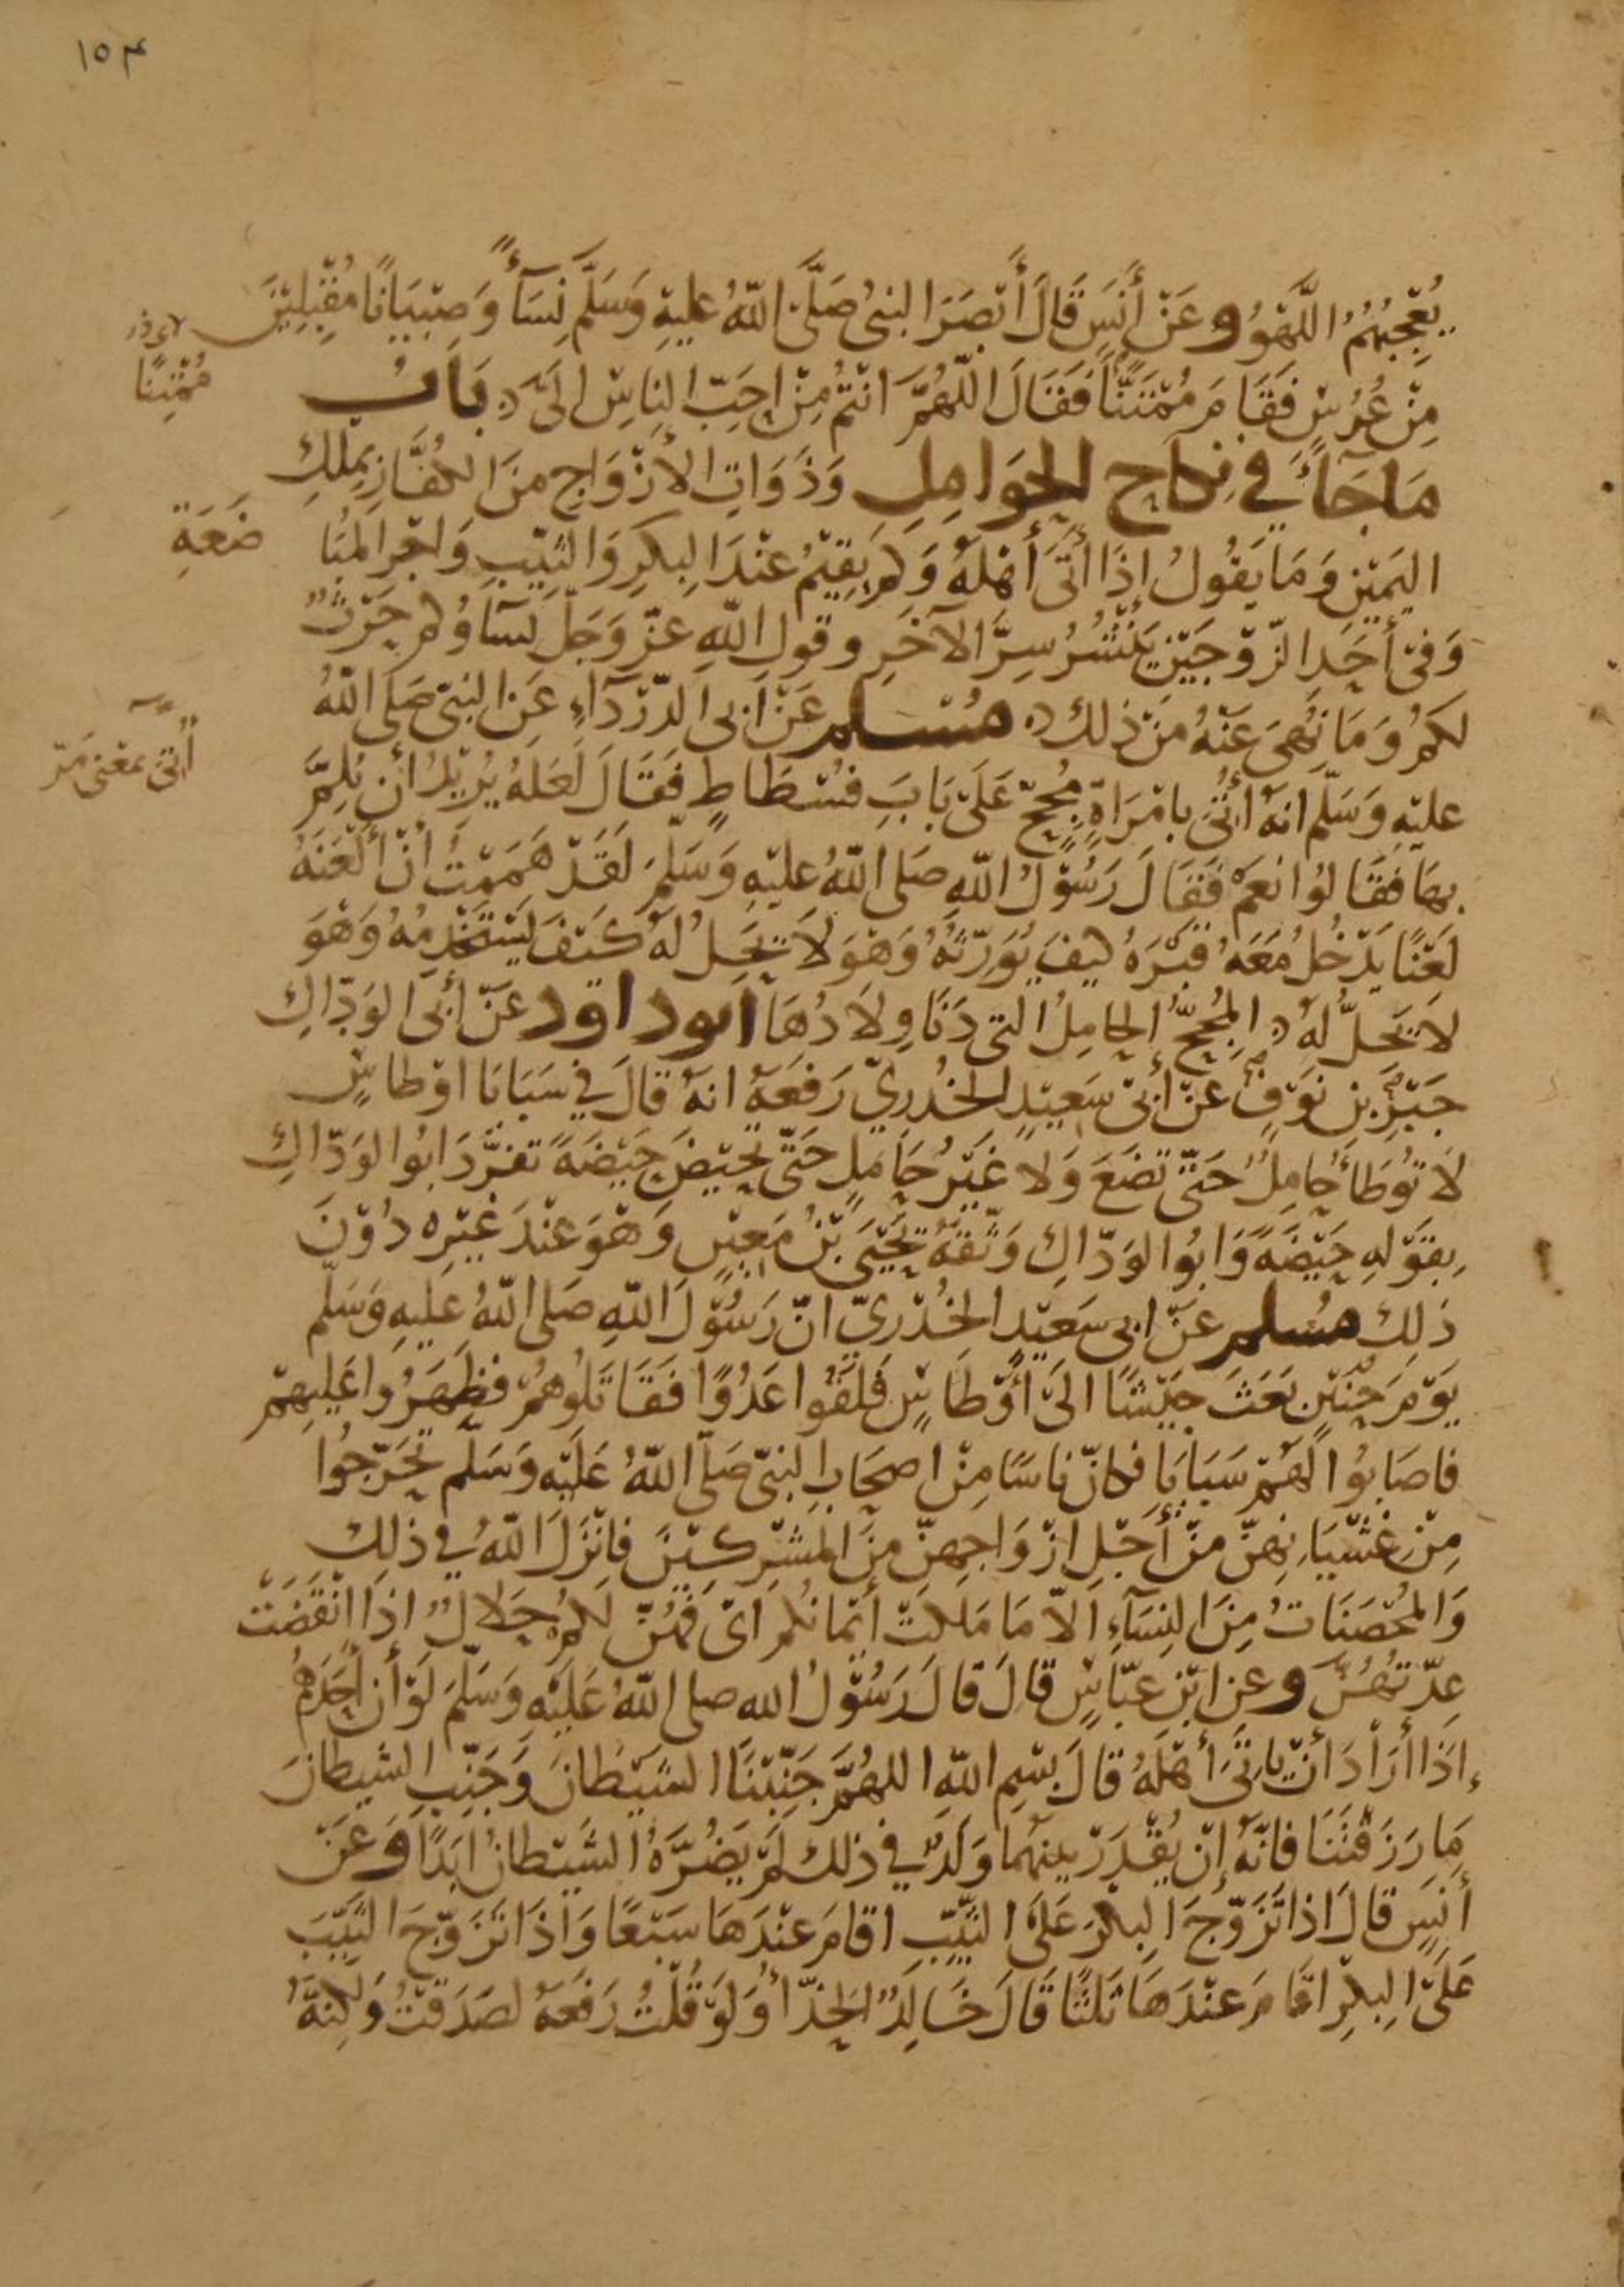 ١٥٣
يُعْجِبُهُمُ اللَّهْوُ وعَنْ أَنَسٍ قَالَ أَبْصَرَ النبىُ صَلَّى اللّهُ عليهِ وَسَلَّمَ نِسَآءً وَصِبْيَانًا مُقْبِلِيْنَ
لابى ذر
مُمْثِنًا
مِنْ عُرُسٍ فَقَامَ مُمْتَنًّا فَقَالَ اللّهُمَّ انْتُمْ مِنْ احَبِّ النَاسِ الَىَّ بَابُ
مَاجَآءَ فِي نِكاحِ الحَوَامِلِ وَذَوَاتِ الأَزْوَاجِ مِنَ الكُفَّارِ بِمِلْكِ
اليَمِيْنِ وَمَا يَقُولُ إِذَا أتَى أَهْلَهُ وَكَمْ يُقِيْمُ عنْدَ البِكرِ وَالثيّبِ وَاجْرِ المُبَا
ضَعَةِ
وَفِى أَحَدِ الزّوْجَيْنِ يَنْشُرُ سِرَّ الآخَرِ وقولِ اللّهِ عزّ وَجَلّ نسَآؤُكم حَرْثٌ
لَكمُ وَمَا نُهِىَ عَنْهُ مِنْ ذلكَ مُسْلم عَنْ ابى الدّرْدَآءِ عَنِ النبىّ صَلى اللّهُ
عليْهِ وَسَلّم انهُ أُتِىَ بامْرَاةٍ مُجِحّ عَلَى بَابِ فُسْطَاطٍ فَقَالَ لَعَلَهُ يُرِيْدُ أن يُلِمَّ
أُتِىَ بمعْنى مَرّ
بِهَا فقَالوُا نعَمْ فَقَالَ رَسُوْلُ اللّهِ صَلى اللّهُ عليْهِ وَسَلَّمَ لَقَدْ هَمَمْتُ أنْ أَلْعَنَهُ
لَعْنًا يَدْخُلُ مَعَهُ قَبْرَهُ كيْفَ يُوَرّثهُ وَهْوَ لاَ يَحِلُ لهُ كَيْفَ يَسْتَخْدِمُهُ وَهْوَ
لاَ يَحلُّ لهُ المُجِحُّ الحامِلُ التى دَنَا وِلاَدُهَا ابوداود عَنْ أبى الوَدّاكِ
جَبْرِ بن نَوْفٍ عَنْ أَبى سَعِيْدٍ الخُدْرِيّ رَفَعَهُ انهُ قَالَ فِي سَبَايَا اوْطاسٍ
لاَ تُوْطَأ حَامِلٌ حَتّى تضَعَ وَلا غَيْرُ حَامِلٍ حَتّى تَحِيْضَ حَيْضَةً تفَرَّدَ ابُوا الوَدّاكِ
بِقَوْلهِ حَيْضَةً وَابُوا لوَدّاكِ وَثّقهُ يَحْيَى بْنُ مَعِيْن وَهْوَ عنْدَ غَيْرِه دُوْنَ
ذَلِكَ مُسْلم عَنْ ابى سَعيْدٍ الخُدْرِيّ انّ رَسُوْلَ اللّهِ صَلى اللّهُ عَليهِ وَسَلّم
يَوْمَ حُنَيْنٍ بَعَثَ جَيْشًا الَى أَوْطَاسٍ فَلَقُوا عَدُوًا فَقَاتَلُوهُمْ فظَهَرُوا عَليهمْ
فاصَابُوا لَهُمْ سَبَايَا فكانّ نَاسًا مِنْ اصحَابِ النبىّ صَلّى اللّهُ عَلَيْهِ وَسَلّم تَحَرّجُوا
مِنْ غشْيَانِهِنّ منْ أَجْلِ ازْوَاجِهِنّ مِنَ المُشْرِكيْنَ فانْزَلَ اللّهُ في ذلكَ
وَالمُحْصَنَاتُ مِنَ النِسَآءِ الاّ مَا مَلكَتْ أَيْمَانُكم اى فهُنّ لَكمُ حَلالٌ اذَا انْقَضَتْ
عِدّتهُنّ وعن ابْنِ عَبّاسٍ قالَ قالَ رَسُوْلُ الله صلى اللّهُ عَلَيْهِ وَسَلّمَ لَوْ أن أَحَدَهُمْ
إذَا أرَادَ أنْ يَاتِىَ أهْلَهُ قالَ بسْمِ اللّهِ اللهُمَّ جَنّبْنَا الشيْطانَ وَجَنِّبِ الشيطانَ
مَا رَزَقْتَنَا فانّهُ إنْ يُقْدَرْ بينهُمَا وَلَدٌ في ذلك لَمْ يَضُرَّهُ الشَيْطانُ ابَدًا وَعَنْ
أنَسٍ قالَ اذا تَزَوّجَ البِكرَ عَلَى الثيِّبِ اقامَ عنْدَهَا سَبْعًا وَاذَا تَزَوّجَ الثيّبَ
عَلَى البِكْرِ اقَامَ عنْدَهَا ثَلثًا قَالَ خَالِدٌ الحَذّاءُ وَلَوْ قُلْتُ رَفَعَهُ لصَدَقْتُ وَلَكِنّهُ